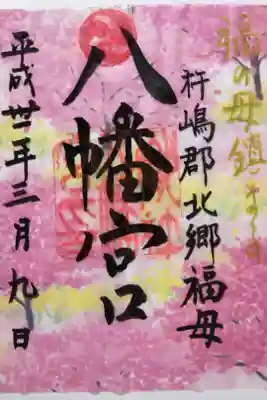 福の母鎮まる
杵嶋郡北郷福母
八幡宮
平成卅一年三月九日